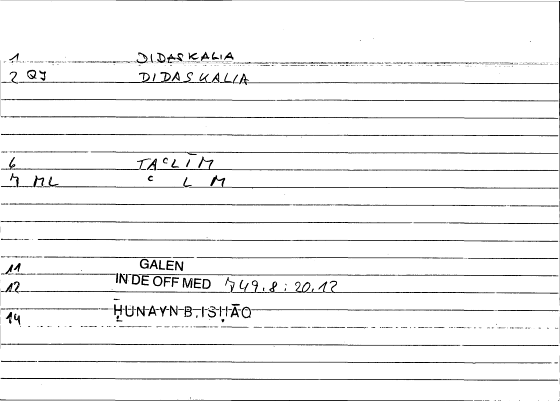 1 DIDASKALIA
2 QJ DIDASKALIA
6 TAᶜLĪM
7 ML ᶜ L M
11 GALEN
12 IN DE OFF MED 749.8 : 20.12
14 ḤUNAYN B. ISḤĀQ